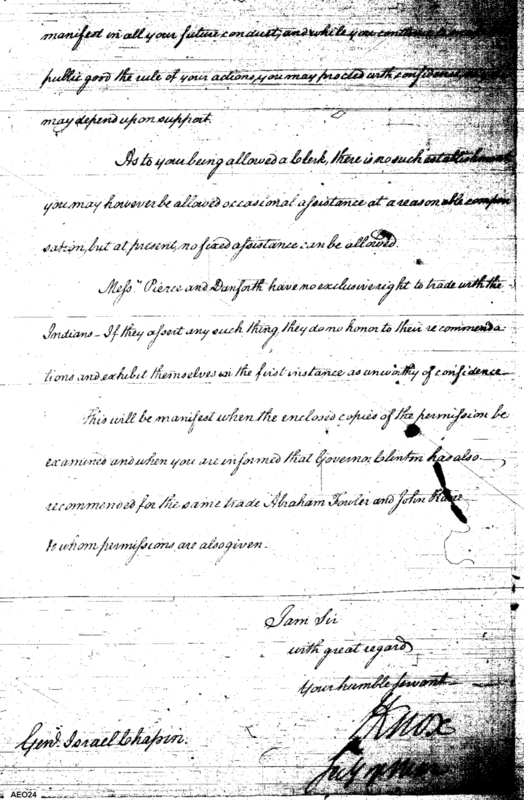 manifest in all your future conduct, and while you continue to make
public good the rule of your actions, you may proceed with confidence, as you
may depend upon support.
As to your being allowed a Clerk, there is no such establishment
you may however be allowed occasional assistance at a reasonable compen
sation, but at present, no fixed assistance can be allowed.
Messrs. Pierce and Danforth have no exclusive right to trade with the
Indians - If they assert any such thing, they do no honor to their recommenda
tions and exhibit themselves in the first instance as unworthy of confidence -
This will be manifest when the enclosed copies of the permission be
examined and when you are informed that Governor Clinton has also
recommended for the same trade Abraham Fowler and John
to whom permissions are also given.
I am Sir
with great regard
Your humble servant
H Knox
Secy of War
Genl. Israel Chapin.
AEO24